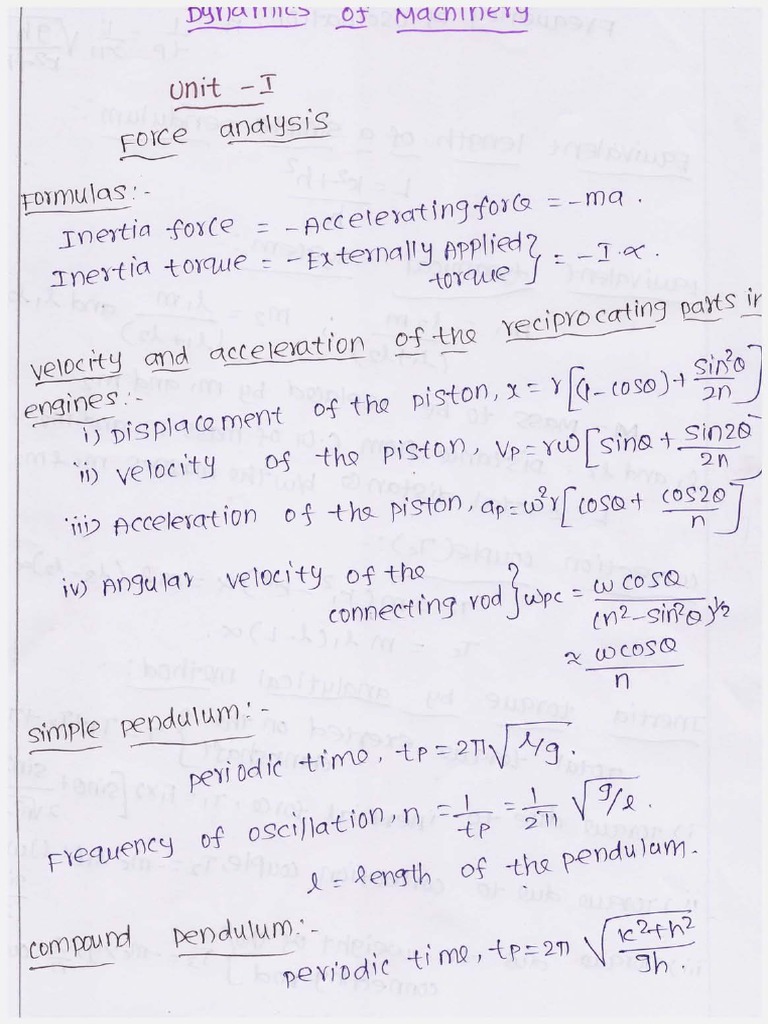 Dynamics of Machinery
Unit - I
Force analysis
Formulas:-
Inertia force = -Accelerating force = -ma.
Inertia torque = -Externally Applied torque } = -I.α.
velocity and acceleration of the reciprocating parts in
engines:-
i) Displacement of the piston, x = r[(1-cosθ)+ sin²θ/2n]
ii) velocity of the piston, vp = rω[sinθ + sin2θ/2n]
iii) Acceleration of the piston, ap = ω²r[cosθ + cos2θ/n]
iv) Angular velocity of the
connecting rod } ωpc = ω cosθ/(n²-sin²θ)^1/2
≈ ωcosθ/n
simple pendulum:-
periodic time, tp = 2π√l/g.
Frequency of oscillation, n = 1/tp = 1/2π √g/l.
l = length of the pendulum.
compound pendulum:-
periodic time, tp = 2π √k²+h²/gh.